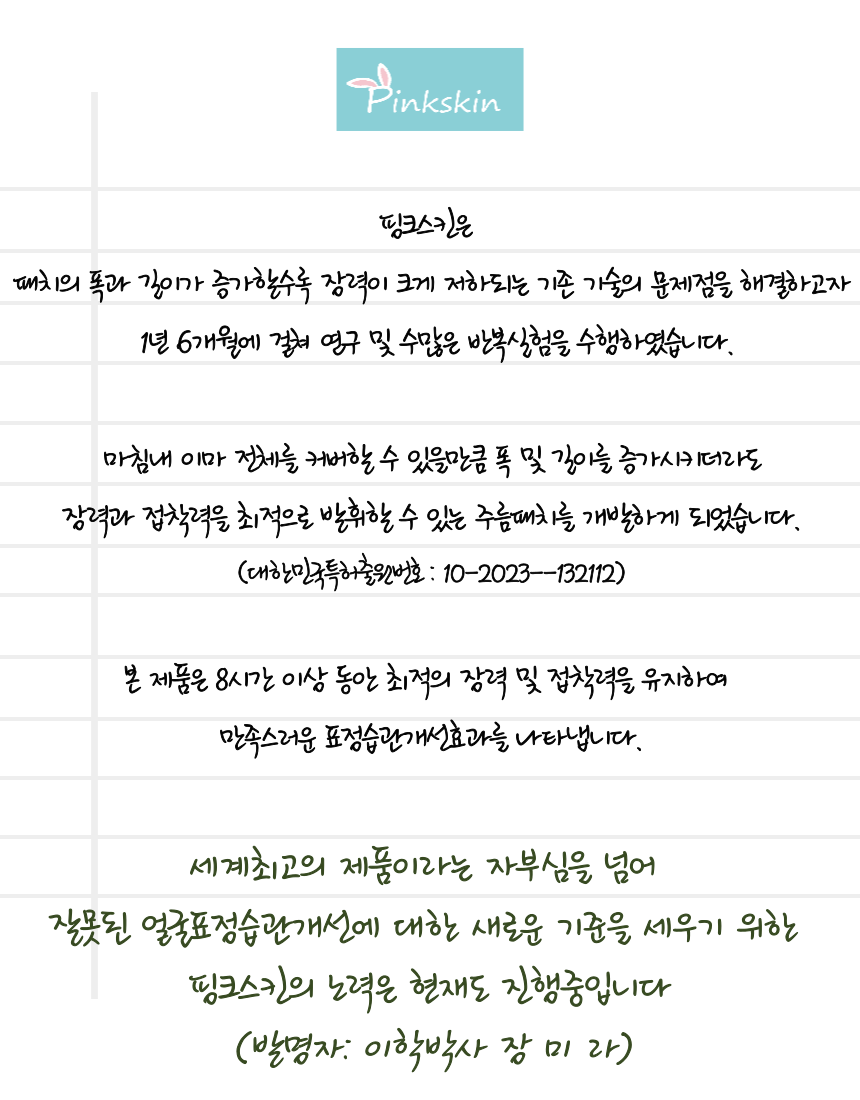 Pinkskin
핑크스킨은
패치의 폭과 길이가 증가할수록 장력이 크게 저하되는 기존 기술의 문제점을 해결하고자
1년 6개월에 걸쳐 연구 및 수많은 반복실험을 수행하였습니다.
마침내 이마 전체를 커버할 수 있을만큼 폭 및 길이를 증가시키더라도
장력과 접착력을 최적으로 발휘할 수 있는 주름패치를 개발하게 되었습니다.
(대한민국특허출원번호 : 10-2023--132112)
본 제품은 8시간 이상 동안 최적의 장력 및 접착력을 유지하여
만족스러운 표정습관개선효과를 나타냅니다.
세계최고의 제품이라는 자부심을 넘어
잘못된 얼굴표정습관개선에 대한 새로운 기준을 세우기 위한
핑크스킨의 노력은 현재도 진행중입니다
(발명자: 이학박사 장 미 라)